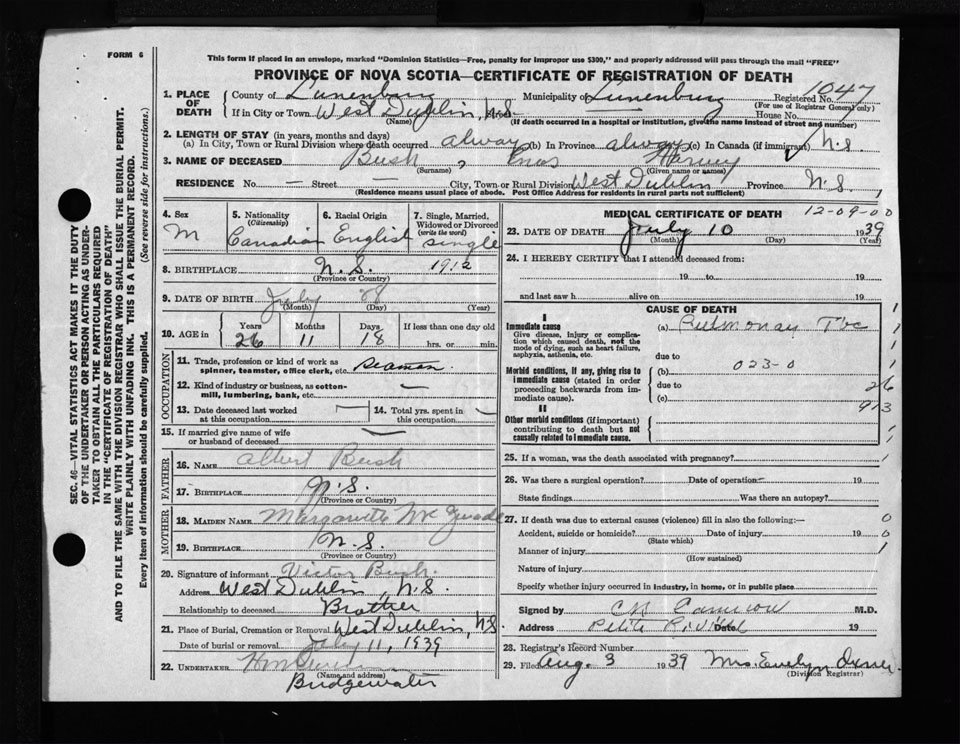 FORM 6
This form if placed in an envelope, marked "Dominion Statistics—Free, penalty for improper use $300," and properly addressed will pass through the mail "FREE"
PROVINCE OF NOVA SCOTIA—CERTIFICATE OF REGISTRATION OF DEATH
1. PLACE OF DEATH
County of Lunenburg Municipality of Lunenburg Registered No. 1047
(For use of Registrar General only)
If in City or Town West Dublin, N.S. House No.
(Name) (If death occurred in a hospital or institution, give the name instead of street and number)
2. LENGTH OF STAY (in years, months and days)
(a) In City, Town or Rural Division where death occurred always (b) In Province always (c) In Canada (if immigrant) N.S.
3. NAME OF DECEASED Bush, Enos Harvey
(Surname) (Given name or names)
RESIDENCE No. — Street — City, Town or Rural Division West Dublin Province N.S.
(Residence means usual place of abode. Post Office Address for residents in rural parts not sufficient)
4. Sex M
5. Nationality (Citizenship) Canadian
6. Racial Origin English
7. Single, Married, Widowed or Divorced (write the word) Single
8. BIRTHPLACE N.S. 1912
(Province or Country)
9. DATE OF BIRTH July 28
(Month) (Day) (Year)
10. AGE in Years 26 Months 11 Days 18 If less than one day old hrs. or min.
OCCUPATION
11. Trade, profession or kind of work as spinner, teamster, office clerk, etc. Seaman
12. Kind of industry or business, as cotton-mill, lumbering, bank, etc. —
13. Date deceased last worked at this occupation —
14. Total yrs. spent in this occupation —
15. If married give name of wife or husband of deceased —
FATHER
16. NAME Albert Bush
17. BIRTHPLACE N.S.
(Province or Country)
MOTHER
18. MAIDEN NAME
19. BIRTHPLACE N.S.
(Province or Country)
20. Signature of informant Victor Bush.
Address West Dublin, N.S.
Relationship to deceased Brother
21. Place of Burial, Cremation or Removal West Dublin, N.S.
Date of burial or removal July 11, 1939
22. UNDERTAKER
(Name and address)
Bridgewater
MEDICAL CERTIFICATE OF DEATH
12-09-00
23. DATE OF DEATH July 10 1939
(Month) (Day) (Year)
24. I HEREBY CERTIFY that I attended deceased from:
19 to 19
and last saw h alive on 19
CAUSE OF DEATH
I
Immediate cause
Give disease, injury or complication which caused death, not the mode of dying, such as heart failure, asphyxia, asthenia, etc.
(a) Pulmonary Tbc
due to
Morbid conditions, if any, giving rise to immediate cause (stated in order proceeding backwards from immediate cause).
(b) 023-0
due to 26
(c) 913
II
Other morbid conditions (if important) contributing to death but not causally related to immediate cause.
25. If a woman, was the death associated with pregnancy?
26. Was there a surgical operation? Date of operation 19
State findings Was there an autopsy?
27. If death was due to external causes (violence) fill in also the following:— 0
Accident, suicide or homicide? Date of injury 19 0
(State which)
Manner of injury 1
(How sustained)
Nature of injury
Specify whether injury occurred in industry, in home, or in public place
Signed by Cameron M.D.
Address Petite Riviere Date 19
28. Registrar's Record Number
29. Filed Aug. 3 1939 Mrs. Evelyn Oxner.
(Division Registrar)
SEC. 46—VITAL STATISTICS ACT MAKES IT THE DUTY
OF THE UNDERTAKER OR PERSON ACTING AS UNDER-
TAKER TO OBTAIN ALL THE PARTICULARS REQUIRED
IN THE "CERTIFICATE OF REGISTRATION OF DEATH"
AND TO FILE THE SAME WITH THE DIVISION REGISTRAR WHO SHALL ISSUE THE BURIAL PERMIT.
WRITE PLAINLY WITH UNFADING INK. THIS IS A PERMANENT RECORD.
Every item of information should be carefully supplied. (See reverse side for instructions.)